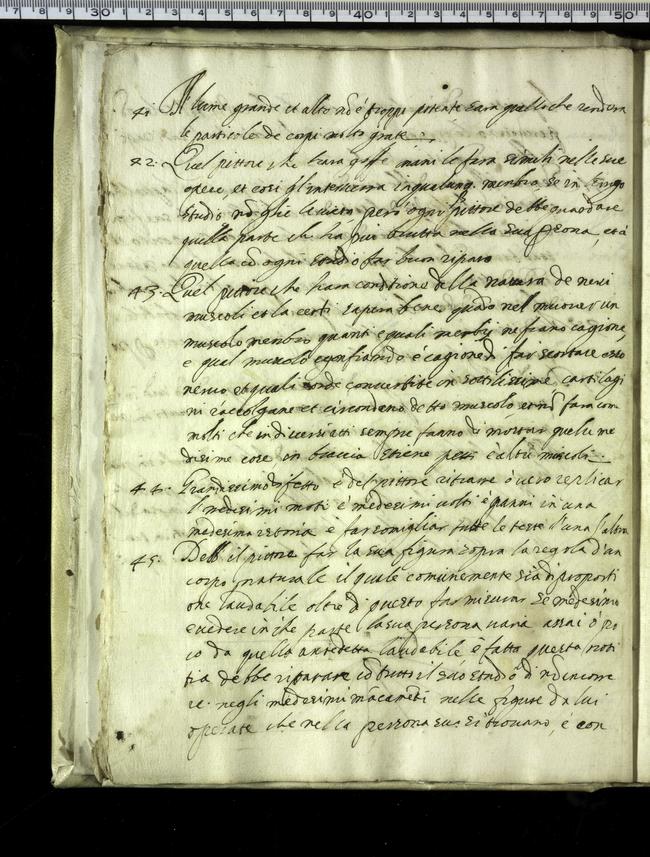 41. Il lume grande et alto nō é troppo potente sara quello che rendera
le particole de corpi molto grate
42. Quel pittore che hara goffe mani le fara simili nelle sue
opere et cosi gl'interverra in qualunq. membro se in lungo
studio nō glie le vieta pero ogni pittore debbe guardare
quella parte che ha piu brutta nella sua persona, et á
quella cō ogni studio far buon riparo
43. Quel pittore che hara cognitione della natura de nervi
muscoli et la certi sapera bene quādo nel muover un
muscolo membro quanti e quali nerbi ne siano cagione,
e qual muscolo sgonfiando é cagione di far scortare esso
nervo et quali corde convertite in sottilissime cartilagi
ni raccolgano et circondano detto muscolo et nō fara com
molti che in diversi atti sempre fanno di mostrar quelle me
desime cose in braccia stiene petti é altri muscoli.
44. Grandissimo difetto é del pittore ritrare ó vero replicar
l medesimi moti é medesimi volti é panni in una
medesima istoria é far somigliar tutte le teste l'una l'altra
45. Debb il pittore far la sua figura sopra la regola d'un
corpo naturale il quale comunemente sia di proporti
one laudabile oltre di questo far misurar se medesimo
e vedere in che parte la sua persona varia assai ó po
co da quella antedetta laudabile é fatto questa noti
tia debbe riparare cō tutto il suo studio di nō incorre
re negli medesimi mācamēti nelle figure da lui
operate che nella persona sua si trovano, é con